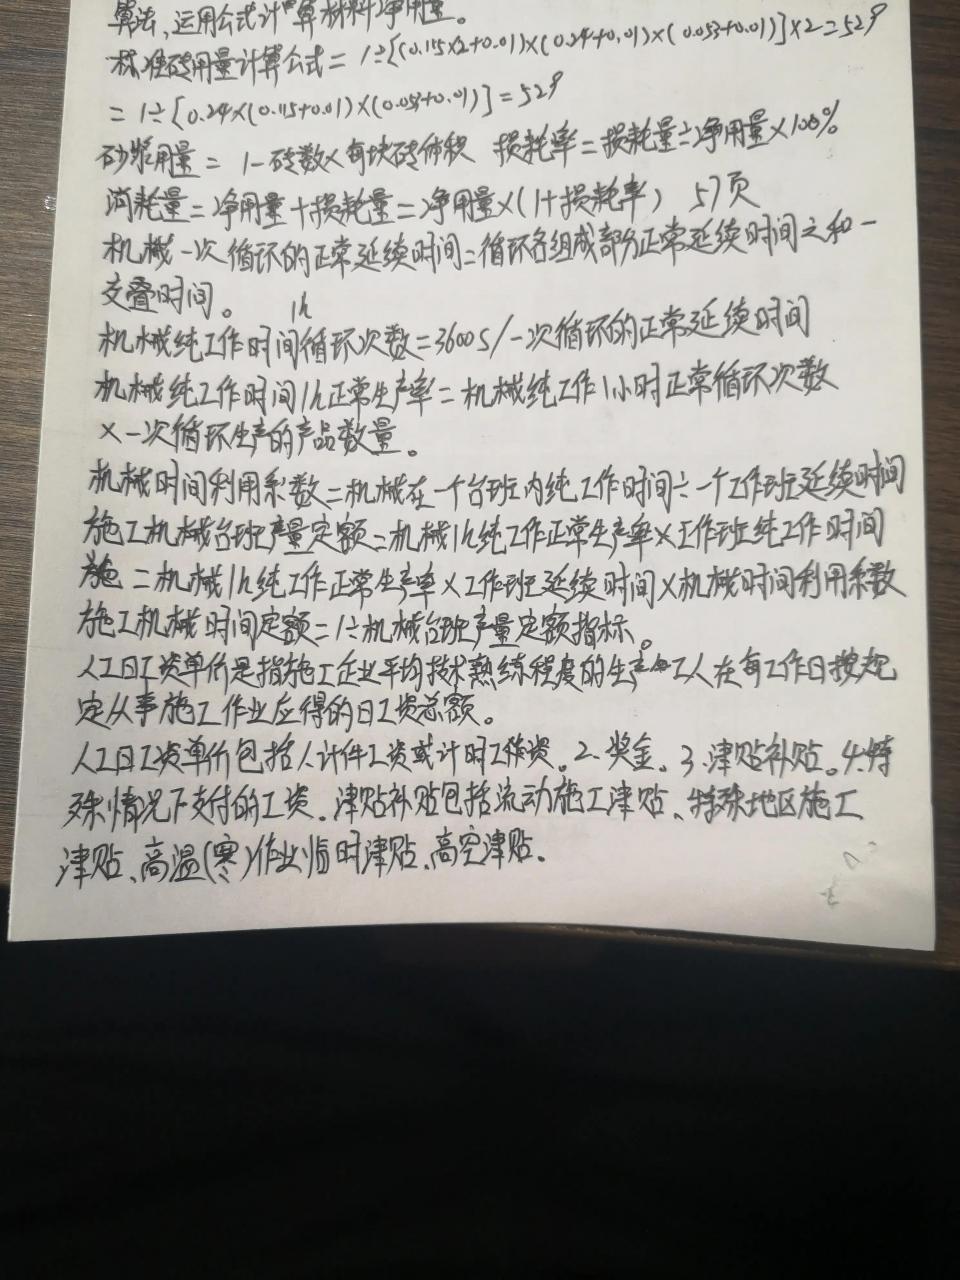 算法、运用公式计算材料净用量。
标准砖用量计算公式= 1÷[(0.115×2+0.01)×(0.24+0.01)×(0.053+0.01)]×2=529
= 1÷[0.24×(0.115+0.01)×(0.053+0.01)]=529
砂浆用量= 1-砖数×每块砖体积 损耗率=损耗量÷净用量×100%
消耗量=净用量+损耗量=净用量×(1+损耗率) 57页
机械一次循环的正常延续时间=循环各组成部分正常延续时间之和-
交叠时间。
1h
机械纯工作时间循环次数=3600s/一次循环的正常延续时间
机械纯工作时间1h正常生产率=机械纯工作1小时正常循环次数
×一次循环生产的产品数量。
机械时间利用系数=机械在一个台班内纯工作时间÷一个工作班延续时间
施工机械台班产量定额=机械1h纯工作正常生产率×工作班纯工作时间
=机械1h纯工作正常生产率×工作班延续时间×机械时间利用系数
施工机械时间定额=1÷机械台班产量定额指标。
人工日工资单价是指施工企业平均技术熟练程度的生产工人在每工作日按规
定从事施工作业应得的日工资总额。
人工日工资单价包括1.计件工资或计时工资。2.奖金、3.津贴补贴。4.特
殊情况下支付的工资。津贴补贴包括流动施工津贴、特殊地区施工
津贴、高温(寒)作业临时津贴、高空津贴.